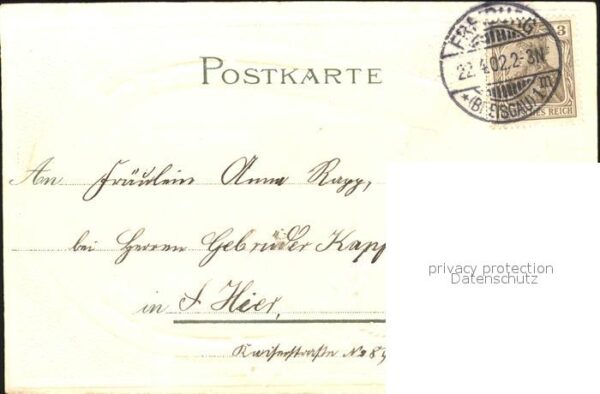 POSTKARTE
FREIBURG
3
22.4.02.2-3N.
*(BREISGAU)1.
REICH
An Fräulein Anna Rapp,
bei Herren Gebrüder Kapp
in Hier,
Kaiserstraße No 89
privacy protection
Datenschutz